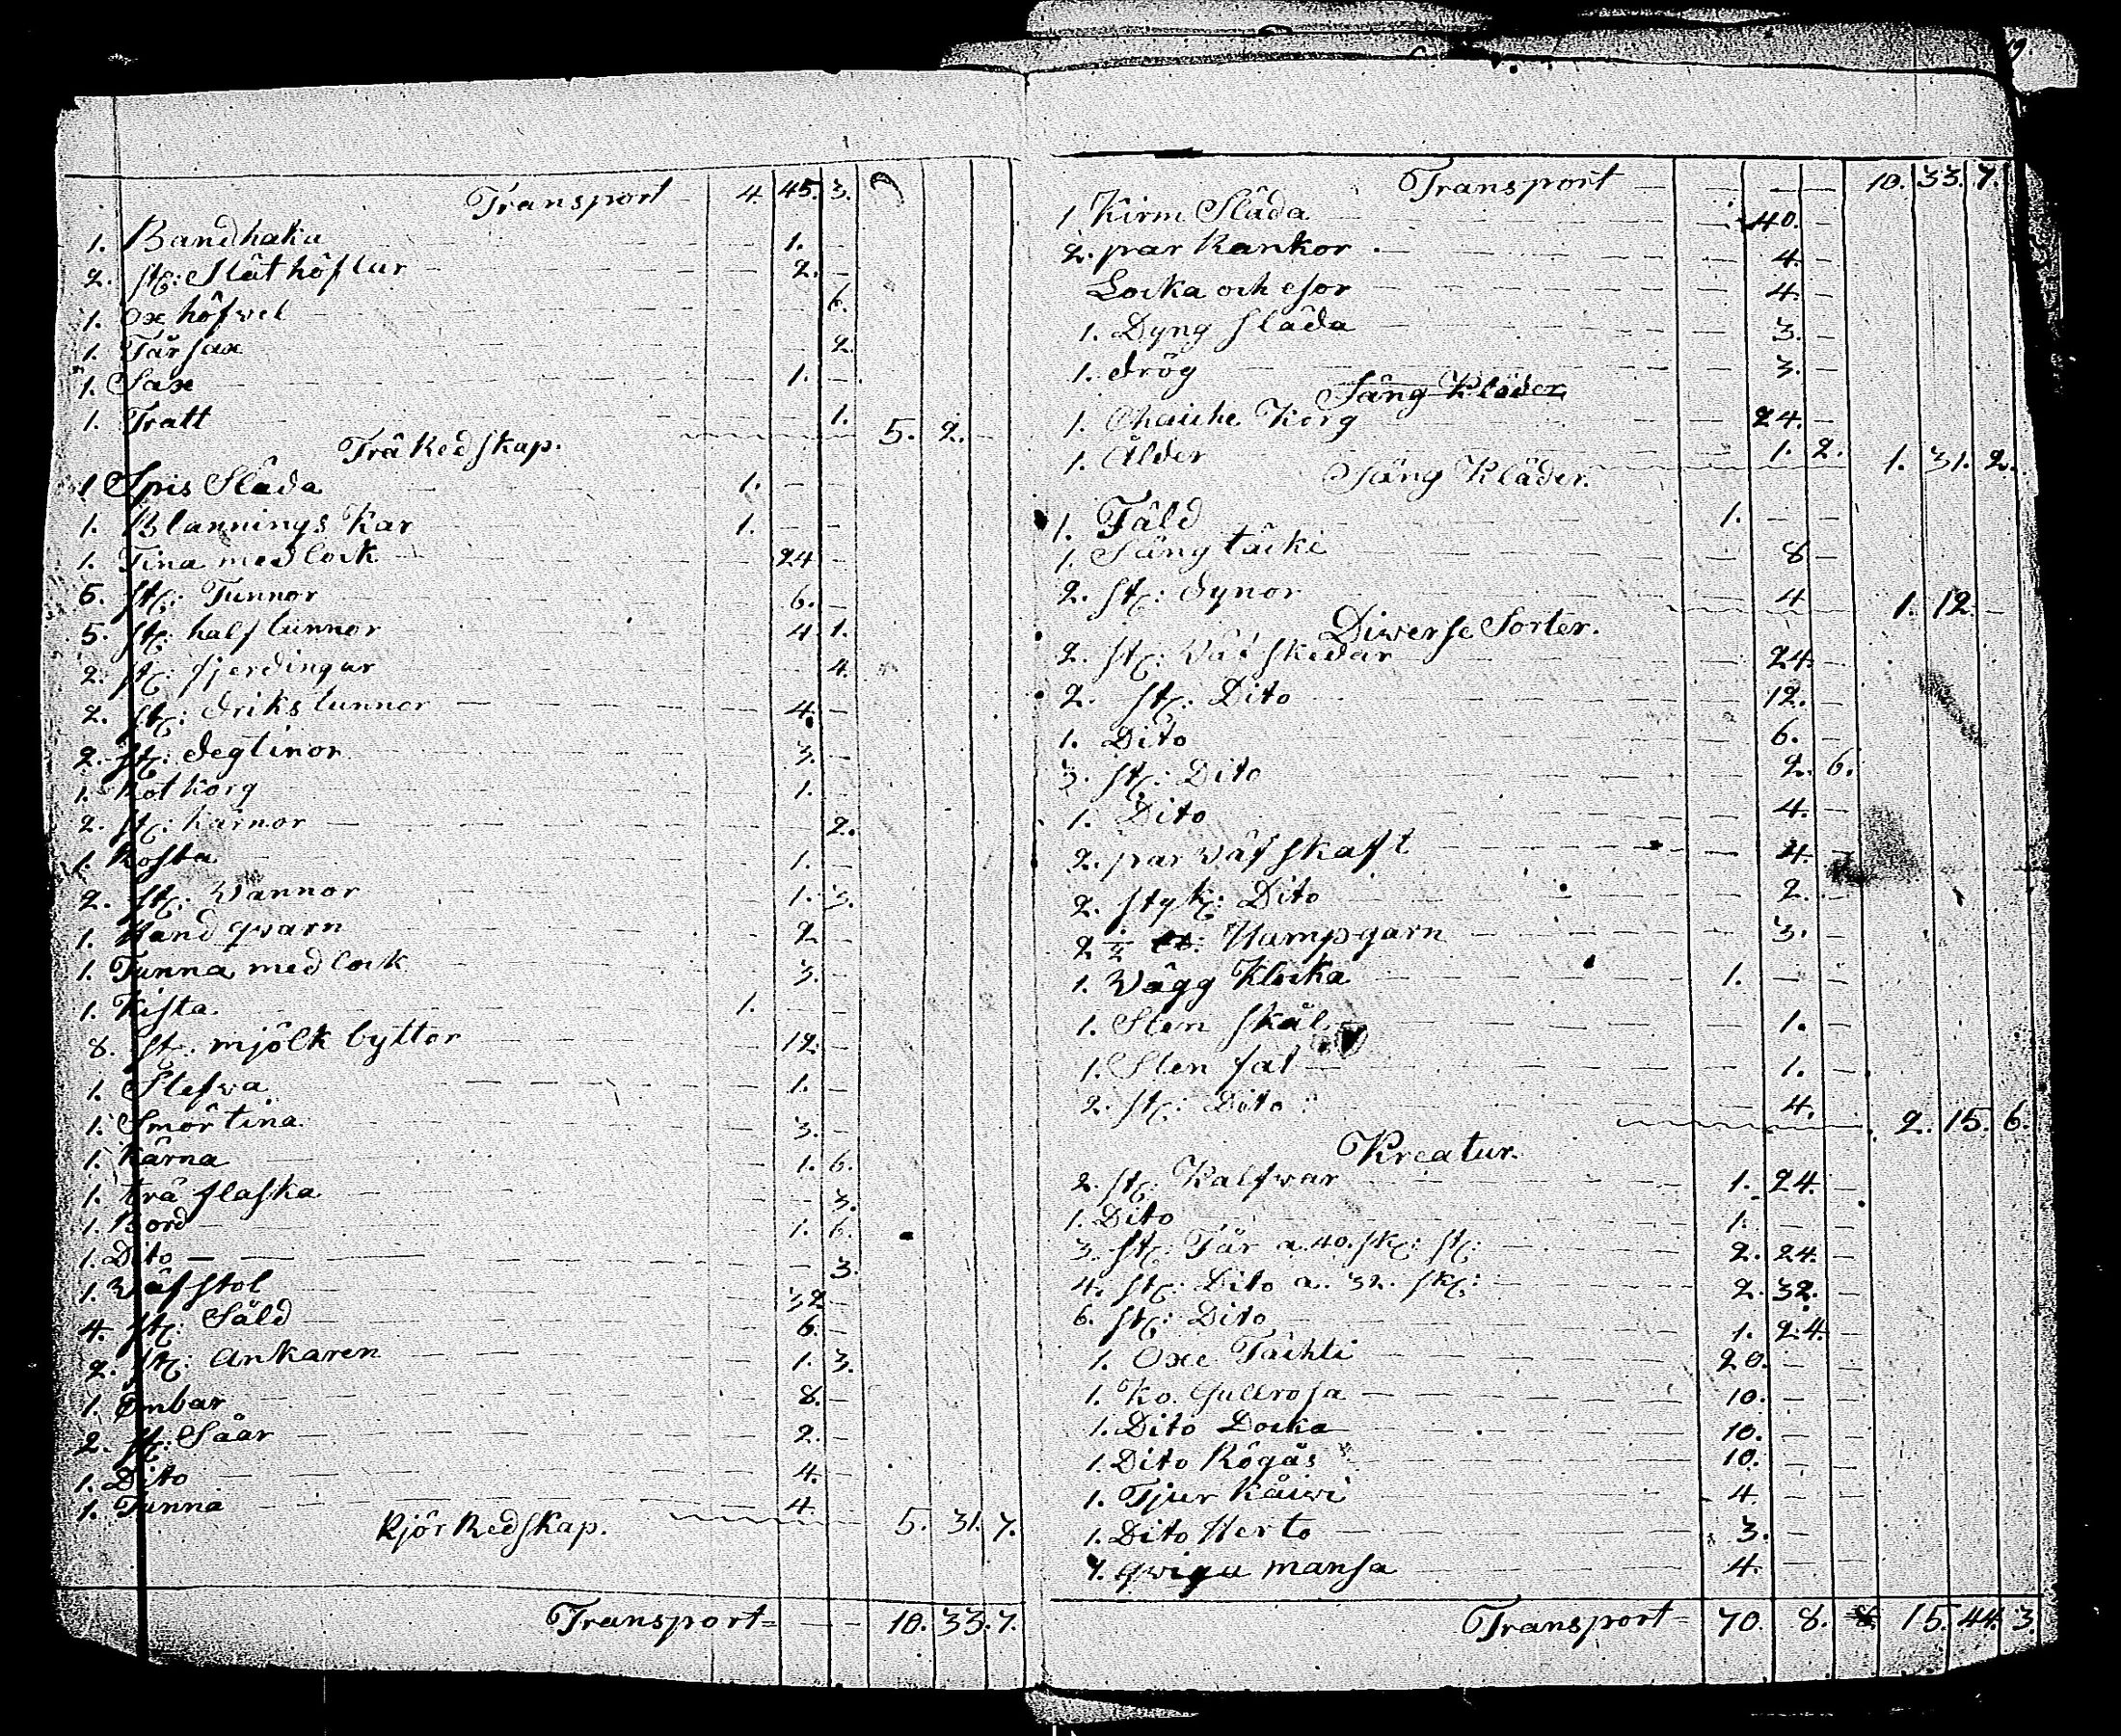 Transport 4. 45. 3.
1. Bandhaka 1. -
2. st: Slät höflar 2. -
1. ox höfvel 6.
1. Fårsax 2.
1. Sax 1. -
1. Tratt 1. 5. 2. -
Trä Redskap.
1 Spis Släda 1. -
1. Blannings Kar 1. - -
1. Tina med lock 24 -
5. st: Tunnor 6. -
5. st: half tunnor 4. 1.
2. st: fjerdingar 4.
2. st: drikstunnor 4. -
2. st: degtinor 3. -
1. Rotkorg 1. -
2. st: kärnor 2.
1. Rossta 1. -
2. st: Vannor 1. 3.
1. Hand qvarn 2 -
1. Tunna med lock 3. -
1. Kista 1. - -
8. st. mjölk byttor 12. -
1. Stefva 1. -
1. Smör tina 3. -
1. Kärna 1. 6.
1. trä flaska 3.
1. Bord 1. 6.
1. Dito 3.
1. Väfstol 32 -
4. st: Såld 6. -
2. st: Ankaren 1. 3.
1. Embar 8. -
2. st: Såar 2. -
1. Dito 4. -
1. Tunna 4. 5. 31. 7.
Kjör Redskap.
Transport = - - 10. 33. 7.
Transport - - - 10. 33. 7.
1 Kirm Släda 40. -
2. par Rankor 4. -
Locka och 4. -
1. Dyng släda 3. -
1. drög 3. -
Säng Kläder
1. Chaiche Korg 24. -
1. Ålder 1. 2. 1. 31. 2.
Säng Kläder.
1. Fäld 1. - -
1. Säng täcke 8 -
2. st: dynor 4 1. 12. -
Diverse Sorter.
2. st: Väf skedar 24. -
2. st: Dito 12. -
1. Dito 6. -
3. st: Dito 2. 6.
1. Dito 4. -
2. par väfskaft 4. -
2. styk: Dito 2. -
2 1/2 Hampgarn 3. -
1. Vägg Klocka 1. - -
1. Sten skål 1. -
1. Sten fat 1. -
2. st: Dito 4. 2. 15. 6.
Kreatur.
2. st: Kalfvar 1. 24. -
1. Dito 1. - -
3. st: Får a. 40. sk: st: 2. 24. -
4. st: Dito a. 32. sk: 2. 32. -
6. st: Dito 1. 24. -
1. Oxe Täihti 20. - -
1. Ko. Gullrosa 10. - -
1. Dito Docka 10. - -
1. Dito Rögås 10. - -
1. Tjur Käiwi 4. - -
1. Dito Herto 3. -
1. qviga mansa 4. - -
Transport = 70. 8. 15. 44. 3.